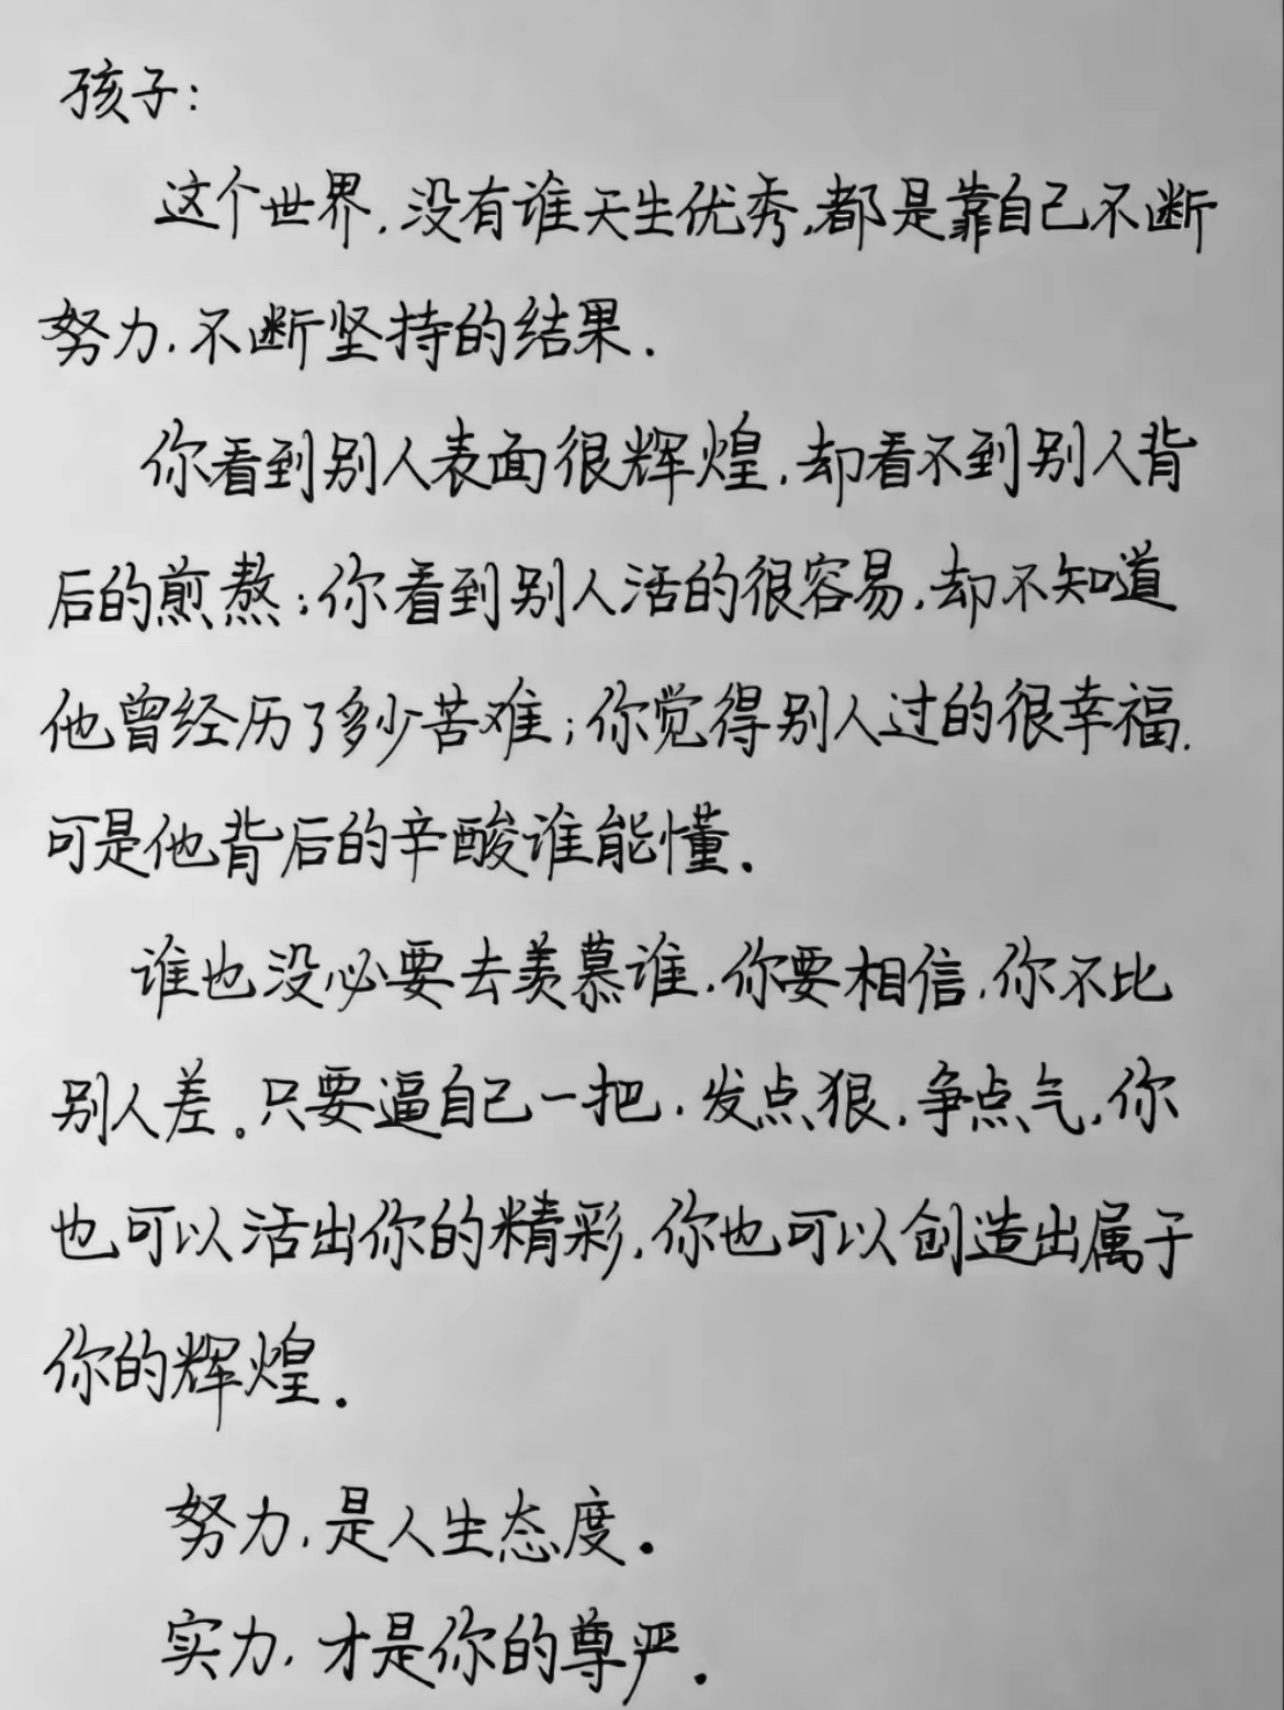 孩子:
这个世界,没有谁天生优秀,都是靠自己不断
努力,不断坚持的结果.
你看到别人表面很辉煌,却看不到别人背
后的煎熬;你看到别人活的很容易,却不知道
他曾经历了多少苦难;你觉得别人过的很幸福,
可是他背后的辛酸谁能懂.
谁也没必要去羡慕谁,你要相信,你不比
别人差。只要逼自己一把,发点狠,争点气,你
也可以活出你的精彩,你也可以创造出属于
你的辉煌.
努力,是人生态度.
实力,才是你的尊严.